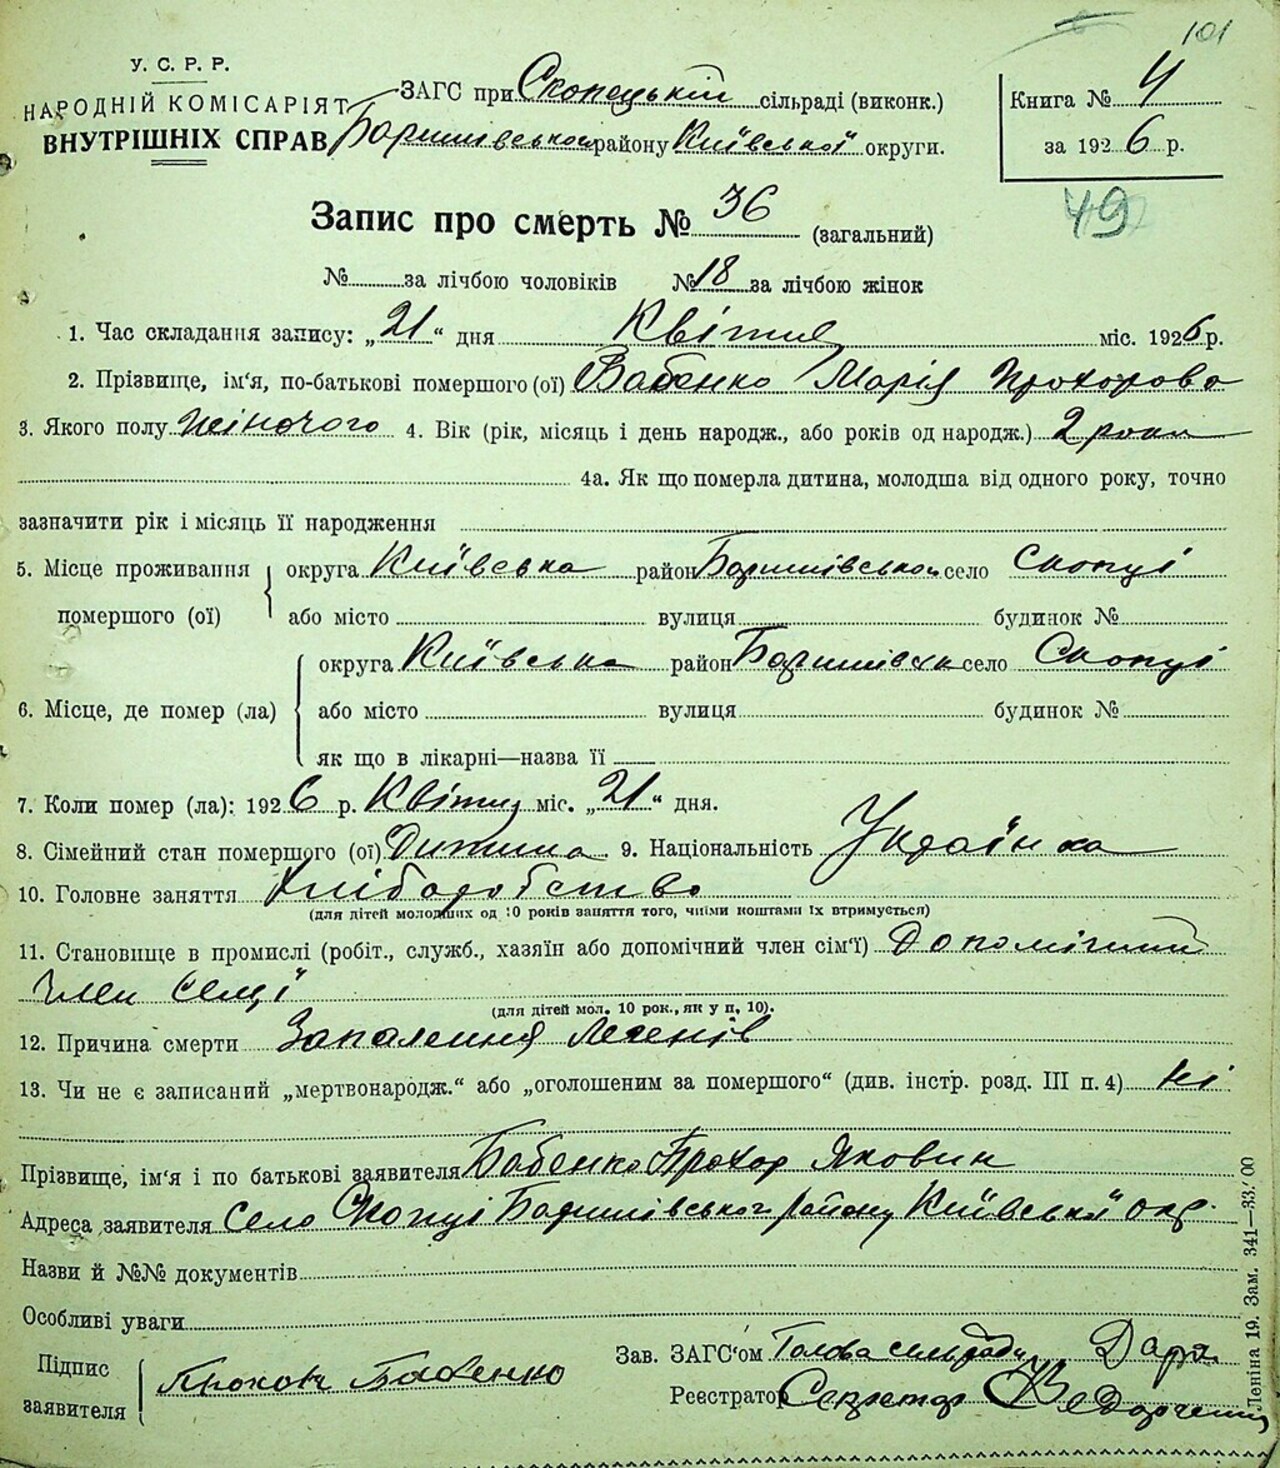 101
У. С. Р. Р.
НАРОДНІЙ КОМІСАРІЯТ
ВНУТРІШНІХ СПРАВ
ЗАГС при Скопецькій сільраді (виконк.)
Баришівського району Київської округи.
Книга № 4
за 1926 р.
49
Запис про смерть № 36 (загальний)
№ за лічбою чоловіків № 18 за лічбою жінок
1. Час складання запису: „21“ дня Квітня міс. 1926 р.
2. Прізвище, ім‘я, по-батькові помершого (ої) Бабенко Марія Прохорова
3. Якого полу жіночого 4. Вік (рік, місяць і день народж., або років од народж.) 2 роки
4а. Як що померла дитина, молодша від одного року, точно
зазначити рік і місяць її народження
5. Місце проживання помершого (ої)
округа Київська район Баришівськ село Скопці
або місто вулиця будинок №
6. Місце, де помер (ла)
округа Київська район Баришівськ село Скопці
або місто вулиця будинок №
як що в лікарні—назва її
7. Коли помер (ла): 1926 р. Квітня міс. „21“ дня.
8. Сімейний стан помершого (ої) Дитина 9. Національність Українка
10. Головне заняття Хліборобство
(для дітей молодших од 10 років заняття того, чиїми коштами їх втримується)
11. Становище в промислі (робіт., служб., хазяїн або допомічний член сім‘ї) Допомічний
член семії
(для дітей мол. 10 рок., як у п. 10).
12. Причина смерти Запалення легенів
13. Чи не є записаний „мертвонародж.“ або „оголошеним за помершого“ (див. інстр. розд. III п. 4) ні
Прізвище, ім‘я і по батькові заявителя Бабенко Прохор Яковин
Адреса заявителя село Скопці Баришівського району Київськ окр.
Назви й №№ документів
Особливі уваги
Підпис заявителя Прохор Бабенко
Зав. ЗАГС‘ом Голова сільради
Реєстратор Секретар
Леніна 19. Зам. 341—33.00